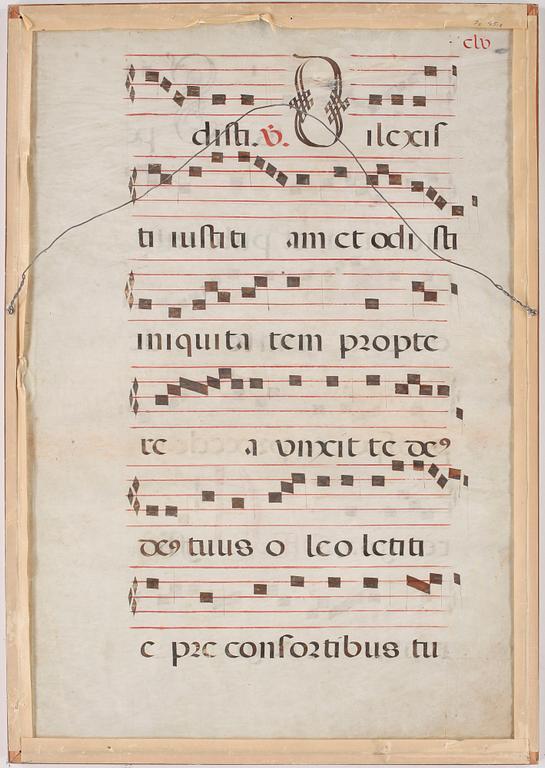 clv
disti. ℣. Dilexis
ti iustiti am et odi sti
iniquita tem propte
re a vnxit te de9
de9 tuus o leo letiti
e pre consortibus tu